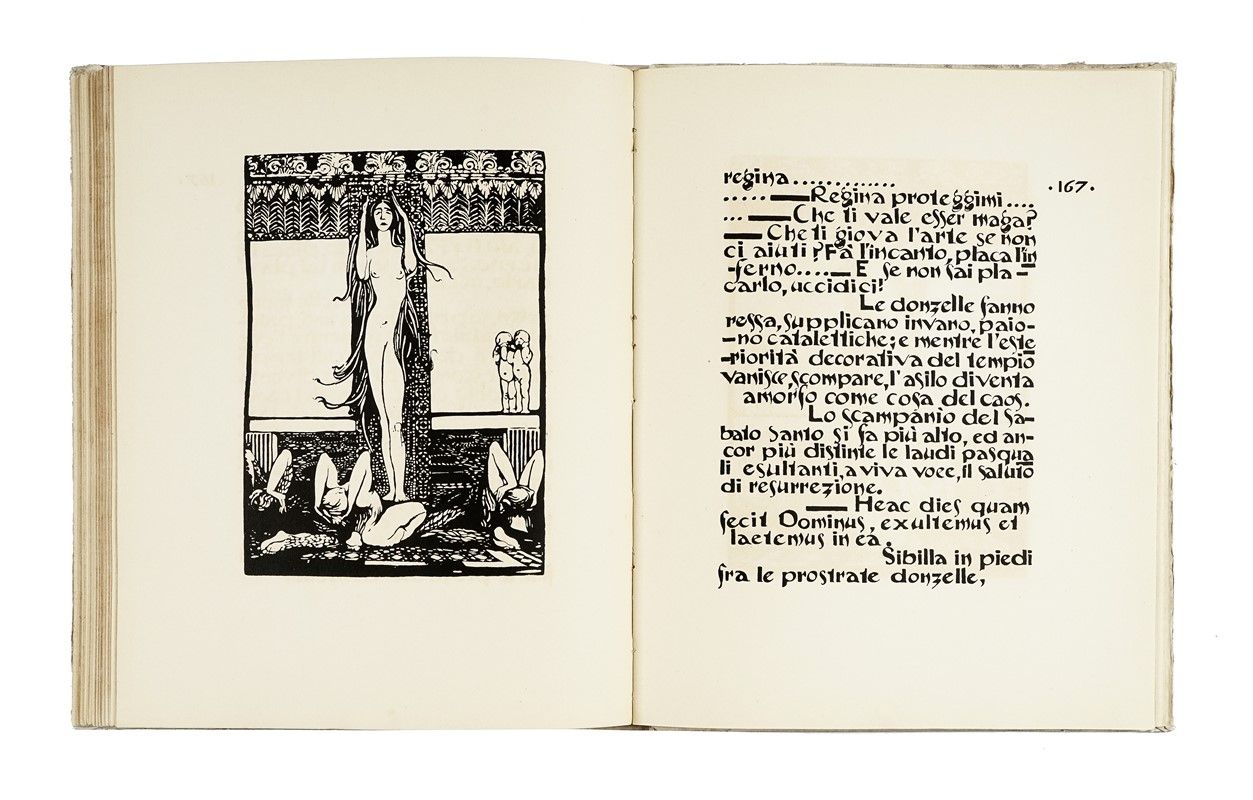 regina.............
·167·
.....—Regina proteggimi....
...—Che ti vale esser maga?
—Che ti giova l'arte se non
ci aiuti? Fa l'incanto, placa l'in
-ferno....—E se non sai pla-
carlo, uccidici!
Le donzelle fanno
ressa, supplicano invano, paio-
-no catalettiche; e mentre l'este
-riorità decorativa del tempio
vanisce, scompare, l'asilo diventa
amorfo come cosa del caos.
Lo scampanìo del Sa-
bato Santo si fa più alto, ed an-
cor più distinte le laudi pasqua
li esultanti, a viva voce, il saluto
di resurrezione.
— Heac dies quam
fecit Dominus, exultemus et
laetemus in ea.
Sibilla in piedi
fra le prostrate donzelle,